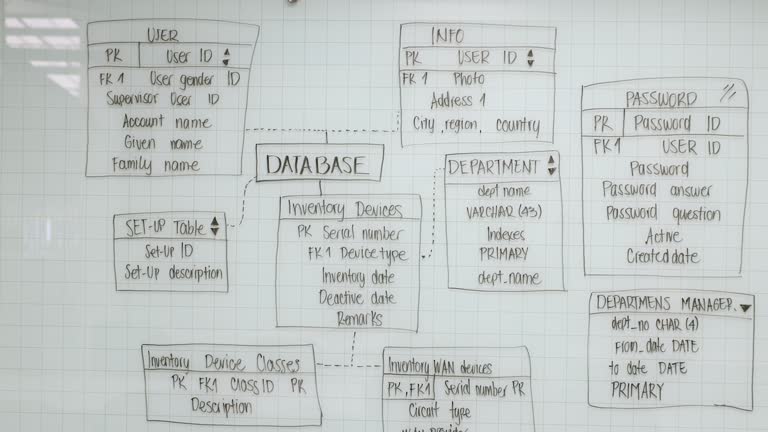 USER
PK User ID
FK 1 User gender ID
Supervisor User ID
Account name
Given name
Family name
INFO
PK USER ID
FK 1 Photo
Address 1
City, region, country
PASSWORD
PR Password ID
PK1 USER ID
Password
Password answer
Password question
Active
Created date
DATABASE
DEPARTMENT
dept name
VARCHAR (43)
Indexes
PRIMARY
dept_name
SET-UP Table
Set-Up ID
Set-Up description
Inventory Devices
PK Serial number
FK1 Device type
Inventory date
Deactive date
Remarks
DEPARTMENS MANAGER.
dept_no CHAR (4)
From_date DATE
to date DATE
PRIMARY
Inventory Device Classes
PK FK1 Class ID PR
Description
Inventory WAN devices
PK, FK1 Serial number PR
Circuit type